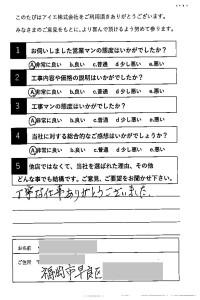 このたびはアイエ株式会社をご利用頂きありがとうございます。
みなさまのご意見をもとに、より喜んで頂けるよう努めて参ります。
1 お伺いしました営業マンの態度はいかがでしたか?
A非常に良い b.良い c.普通 d 少し悪い e.悪い
2 工事内容や価格の説明はいかがでしたか?
A非常に良い b.良い c.普通 d 少し悪い e.悪い
3 工事マンの態度はいかがでしたか?
A非常に良い b.良い c.普通 d 少し悪い e.悪い
4 当社に対する総合的なご感想はいかがでしょうか?
A非常に良い b.良い c.普通 d 少し悪い e.悪い
5 他店ではなくて、当社を選ばれた理由、その他
どんな事でも結構です。ご意見、ご要望をお聞かせ下さい。
丁寧な仕事ありがとうございました。
お名前
ご住所
福岡市早良区